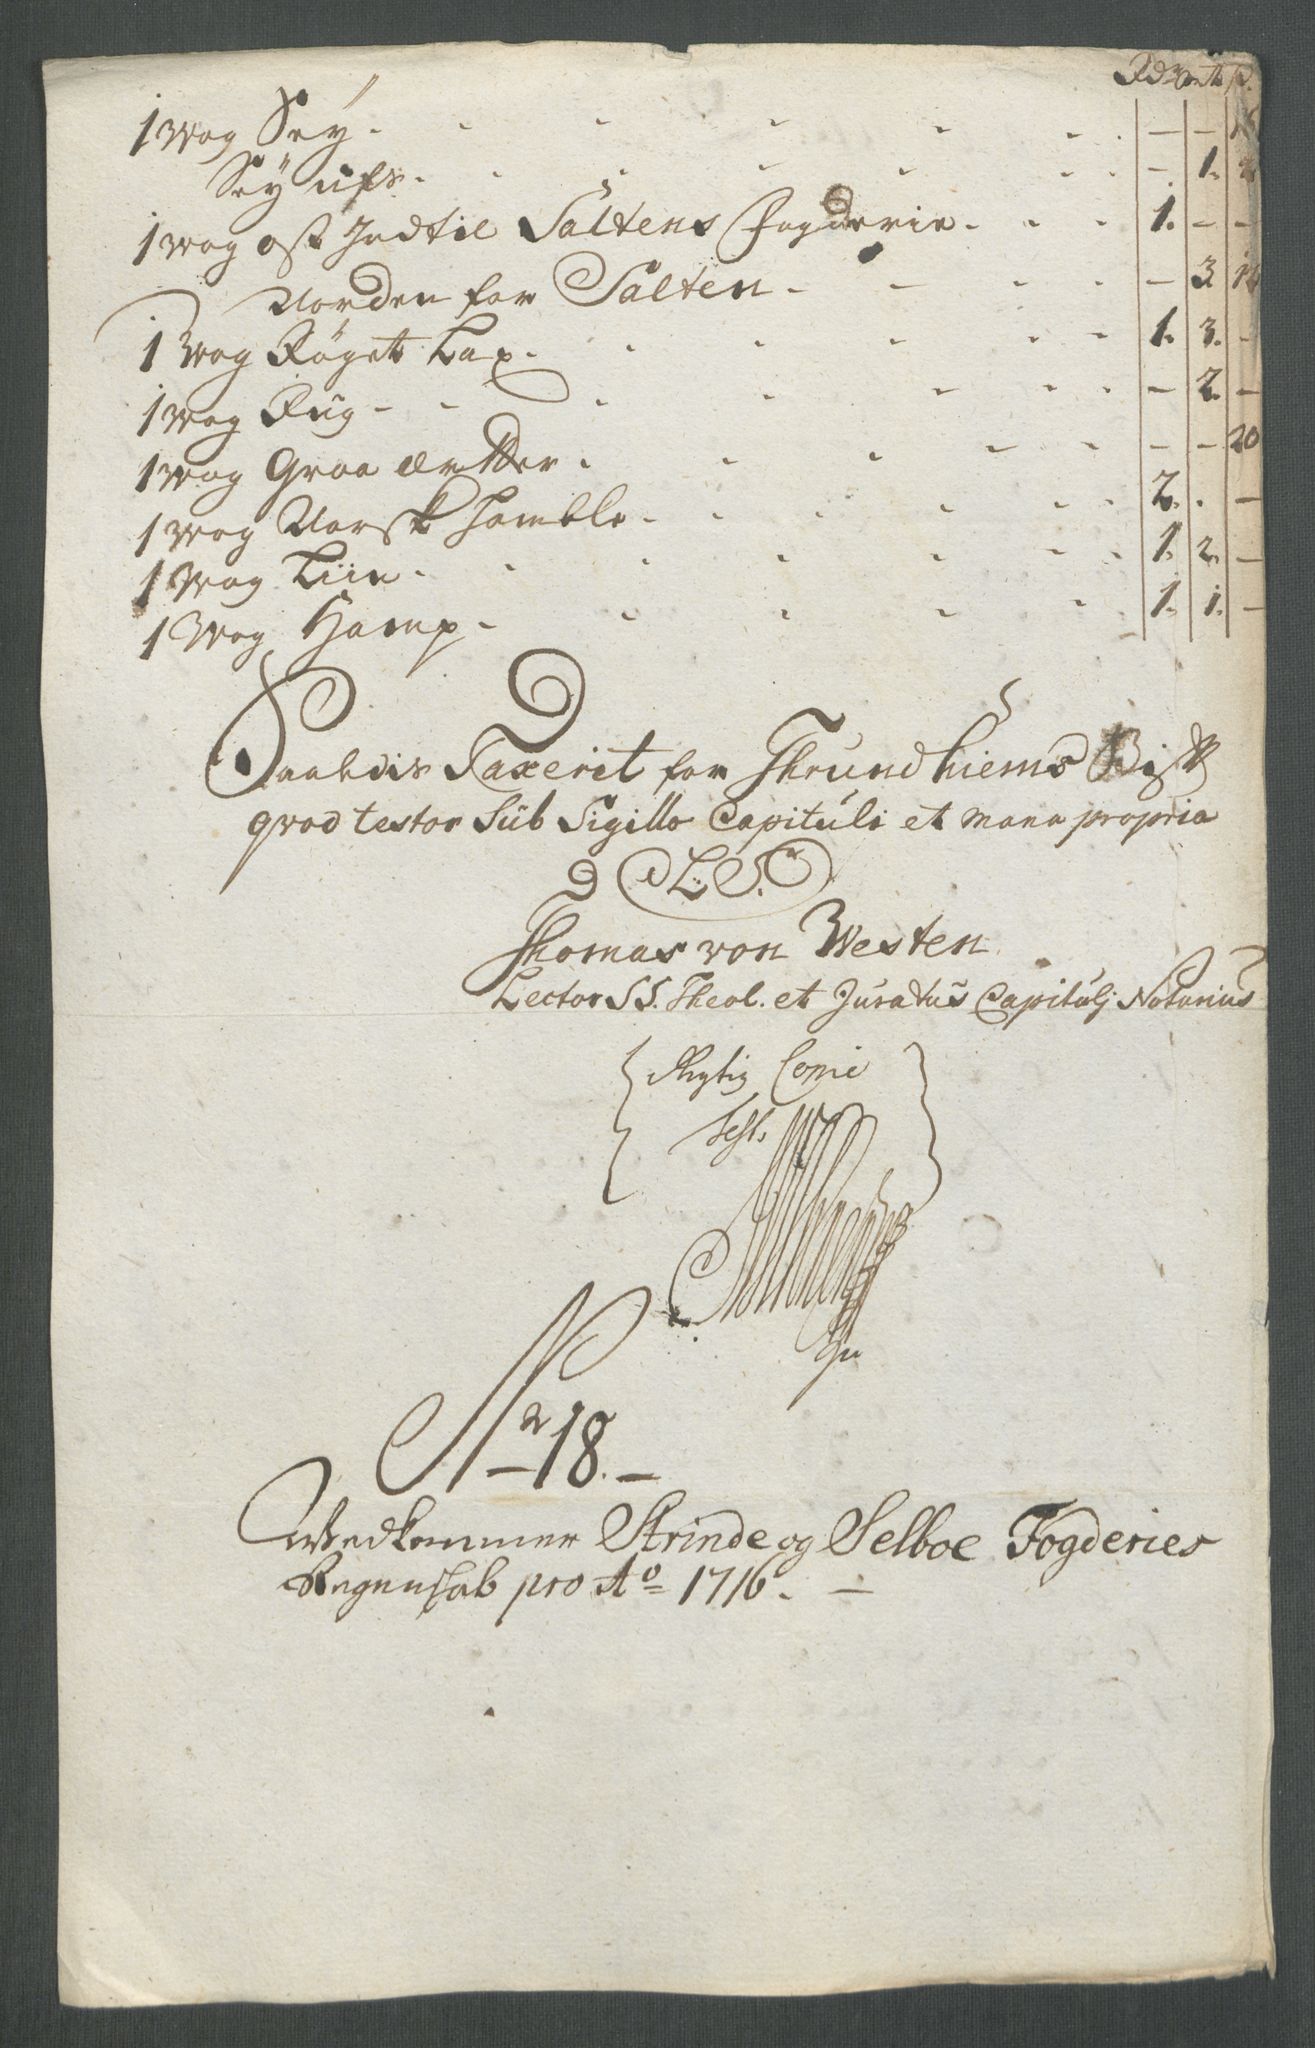 Rdr ort s.
1 Wog Sey - - 16
Seÿ ufs. - 1.
1 Wog ost Indtil Saltens Fogderie. 1. - -
Norden for Salten - - 3 16
1 Wog Röget Lax. 1. 3. -
1 Wog Rug - - 2. -
1 Wog Graa Ertter. - - 20
1 Wog Norsk Homble. 2. . -
1 Wog Liin. 1. 2. -
1 Wog Hamp. 1. 1. -
Saaledis Taxerit for Thrundhiems Bist
qvod testor Sub Sigillo Capituli et manu propria
L. S.
Thomas von Westen
Lector SS. Theol. et Juratus Capitulj Notarius
Rigtig Copie
Test.
No 18.
Wedkommer Strinde og Selboe Fogderies
Regenskab pro Ao 1716.